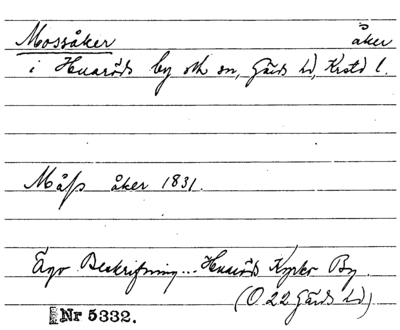 Mossåker åker
i Huaröds by och sn, Gärds hd, Krstd l.
Måss åker 1831.
Ägo Beskrifning... Huaröds Kyrko By.
(O 22 Gärds hd)
Nr 5332.